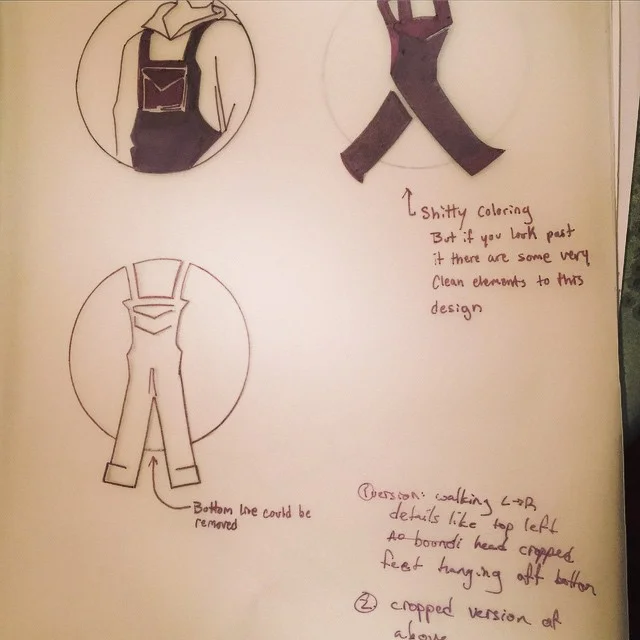 Shitty coloring
But if you look past
it there are some very
Clean elements to this
design
Bottom line could be
removed
① version: walking L→R
details like top left
head cropped
feet hanging off bottom
② cropped version of
above